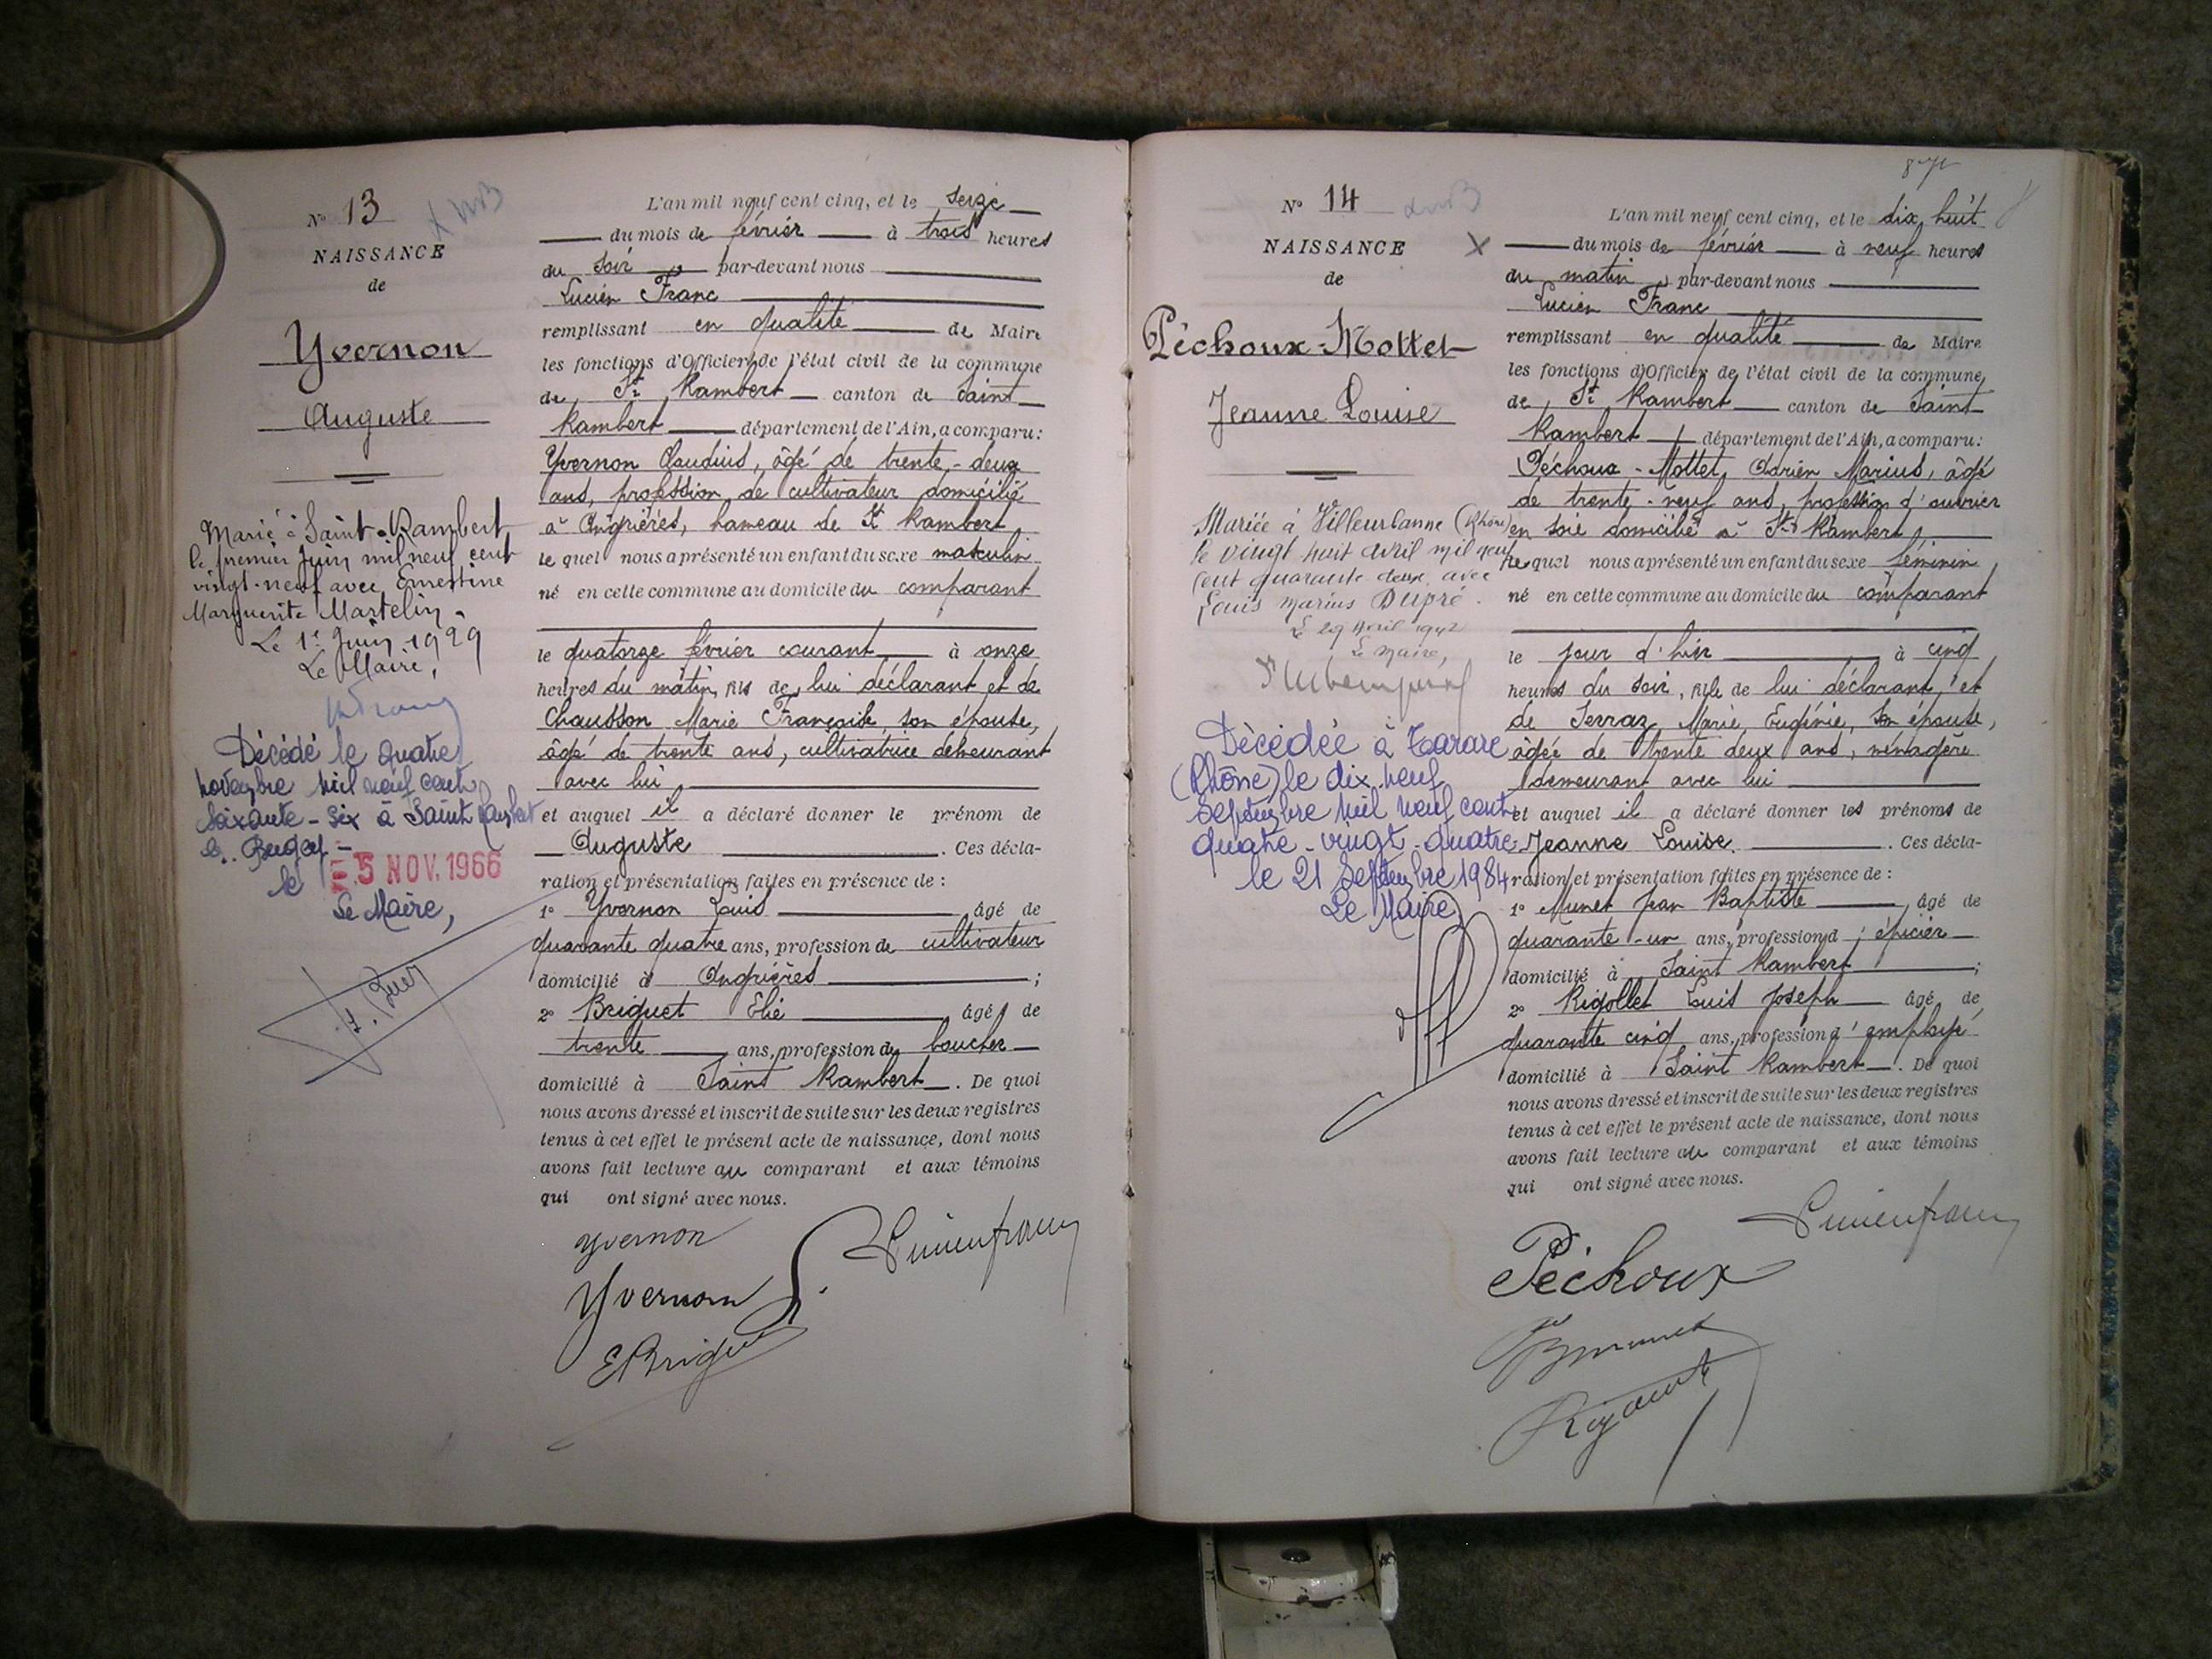 N° 13
NAISSANCE
de
Yvernon
Auguste
Marié à Saint-Rambert
le premier Juin mil neuf cent
vingt-neuf avec Ernestine
Marguerite Martelin.
Le 1er Juin 1929
Le Maire,
Décédé le quatre
novembre mil neuf cent
soixante-six à Saint Rambert
en Bugey -
le 15 NOV. 1966
Le Maire,
L'an mil neuf cent cinq, et le seize
du mois de février à trois heures
du soir par-devant nous
Lucien Franc
remplissant en qualité de Maire
les fonctions d'Officier de l'état civil de la commune
de St Rambert canton de Saint
Rambert département de l'Ain, a comparu:
Yvernon Claudius, âgé de trente-deux
ans, profession de cultivateur domicilié
à Angrières, hameau de St Rambert
le quel nous a présenté un enfant du sexe masculin
né en cette commune au domicile du comparant
le quatorze février courant à onze
heures du matin, fils de lui déclarant et de
Chausson Marie Françoise son épouse,
âgé de trente ans, cultivatrice demeurant
avec lui
et auquel il a déclaré donner le prénom de
Auguste. Ces décla-
ration et présentation faites en présence de :
1° Yvernon Louis âgé de
quarante quatre ans, profession de cultivateur
domicilié à Angrières ;
2° Briguet Elie âgé de
trente ans, profession de boucher
domicilié à Saint Rambert. De quoi
nous avons dressé et inscrit de suite sur les deux registres
tenus à cet effet le présent acte de naissance, dont nous
avons fait lecture au comparant et aux témoins
qui ont signé avec nous.
yvernon
Lucien franc
Yvernon
E Briguet
87
N° 14
NAISSANCE
de
Péchoux-Mottet
Jeanne Louise
Mariée à Villeurbanne (Rhône)
le vingt huit avril mil neuf
cent quarante deux avec
Louis Marius Dupré.
Le 29 Avril 1942
Le Maire,
Décédée à Tarare
(Rhône) le dix-neuf
septembre mil neuf cent
quatre-vingt-quatre
le 21 Septembre 1984
Le Maire,
L'an mil neuf cent cinq, et le dix huit
du mois de février à neuf heures
du matin, par-devant nous
Lucien Franc
remplissant en qualité de Maire
les fonctions d'Officier de l'état civil de la commune
de St Rambert canton de Saint
Rambert département de l'Ain, a comparu:
Péchoux-Mottet, Adrien Marius, âgé
de trente-neuf ans, profession d'ouvrier
en soie domicilié à St Rambert
le quel nous a présenté un enfant du sexe féminin
né en cette commune au domicile du comparant
le jour d'hier à cinq
heures du soir, fille de lui déclarant, et
de Serraz Marie Eugénie, son épouse,
âgée de trente deux ans, ménagère
demeurant avec lui
et auquel il a déclaré donner les prénoms de
Jeanne Louise. Ces décla-
ration et présentation faites en présence de :
1° Munet Jean Baptiste, âgé de
quarante-un ans, profession d'épicier
domicilié à Saint Rambert ;
2° Rigollet Louis Joseph âgé de
quarante cinq ans, profession d'employé
domicilié à Saint Rambert. De quoi
nous avons dressé et inscrit de suite sur les deux registres
tenus à cet effet le présent acte de naissance, dont nous
avons fait lecture au comparant et aux témoins
qui ont signé avec nous.
Lucien franc
Péchoux